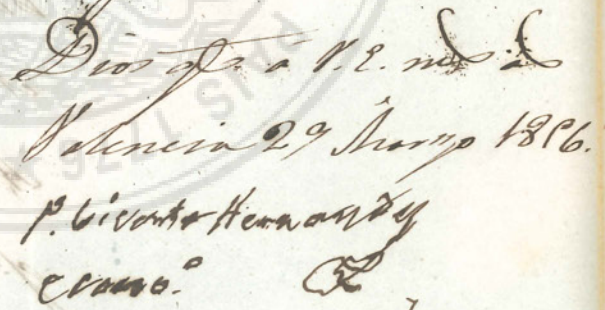 Dios gde. a V. E. ms. as.
Valencia 29 Marzo 1896.
P. Vicente Hernandez
ecomo.
PAIS 1776